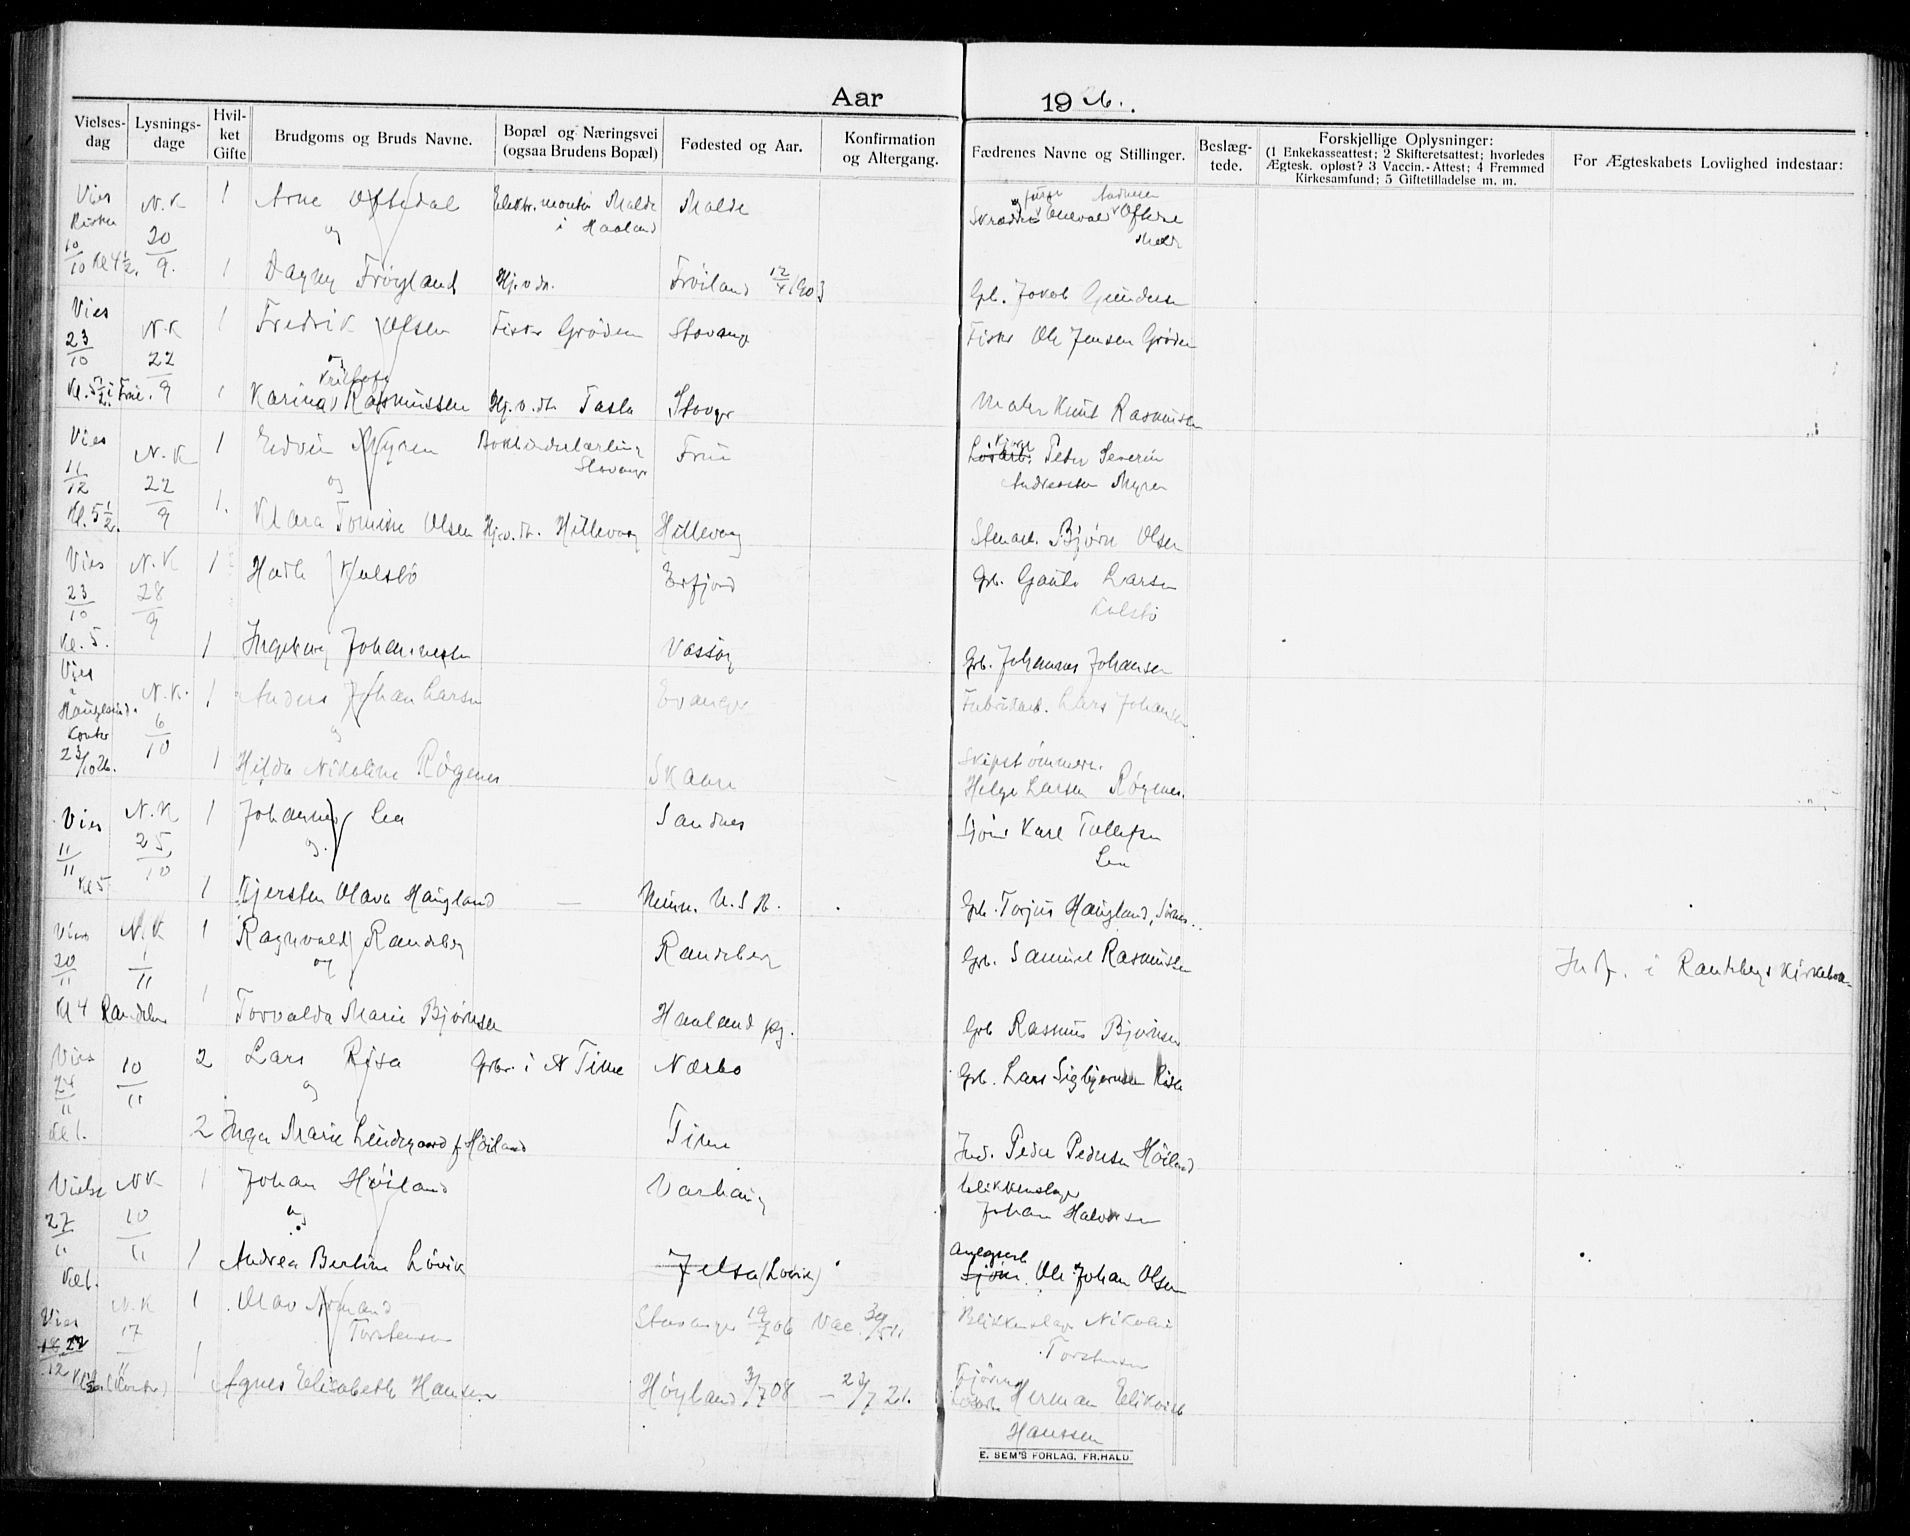 Aar 1926.
Vielses-dag
Lysnings-dage
Hvil-ket Gifte
Brudgoms og Bruds Navne.
Bopæl og Næringsvei (ogsaa Brudens Bopæl)
Fødested og Aar.
Konfirmation og Altergang.
Fædrenes Navne og Stillinger.
Beslæg-tede.
Forskjellige Oplysninger:
(1 Enkekasseattest; 2 Skifteretsattest; hvorledes
Ægtesk. opløst? 3 Vaccin.-Attest; 4 Fremmed
Kirkesamfund; 5 Giftetilladelse m. m.
For Ægteskabets Lovlighed indestaar:
Vies 10/10 Kl 4 1/2. N.K 20/9. 1 Arne Oftedal Elektr. montør Malde i Haaland Malde
og
1 Dagny Frøyland Hj.v.do. Frøiland 12/4 1903 Gb. Jakob Gundersen
Vies 23/10 N.K 22/9 1 Fredrik Olsen Fisker Grøden Stavanger Fisker Ole Jensen Grøden
og
Kl. 5 1/2 i Frue. 1 Karina Rasmussen Hj.v.do. Tasta Stavgr Maler Knut Rasmussen
Vies 11/12 Kl. 5 1/2. N.K 22/9 1 Edvin Myren Bokbinderlærling Stavanger Frue Peder Severin
og Andreassen Myren
1. Klara Tomine Olsen Hj.v.do. Hillevaag Hillevaag Stenarb. Bjørn Olsen
Vies 23/10 Kl. 5. N.K 28/9 1 Kolstø Erfjord Gb. Gaute Larsen
Kolstø
1 Ingeborg Johannessen Vassøy Gb. Johannes Johansen
Vies i Haugesund. Kontor 23/10 26. N.K. 6/10 1 Anders Johan Larsen Evanger Fabrikarb. Lars Johansen
og
1 Hilda Nikoline Røgenes Skaare Skipstømmerm.
Helge Larsen Røgenes.
Vies 11/11 Kl 5 N.K 25/10 1 Johannes Lea Sandnes Sjøm Karl Tollefsen
og. Lea
1 Kjersten Olava Haugland — Minn. U.S.A. Gb. Torjus Haugland,
Vies 20/11 Kl 4 Randeberg N.K 1/11 1 Ragnvald Randeberg Randeberg Gb. Samuel Rasmussen Indf. i Randebergs Kirkebok
og
1 Torvalda Marie Bjørnsen Haaland pgj. Gb Rasmus Bjørnsen
Vies 24/11 Kl 1. 10/11 2 Lars Risa Grbr. i N Time Nærbø Gb. Lars Sigbjørnsen Risa
og
2 Inga Marie Lindegaard f. Høiland Time Ind. Peder Pedersen Høiland
Vielse 27/11 NK 10/11 1 Johan Høiland Varhaug Blikkenslager
og Johan Halvorsen
1 Andrea Bertine Løvik Jelsa (Lovik) Anlegsarb
Sjøm. Ole Johan Olsen
Vies 22/12 N.K 17/11 1 Olav Armand Stavanger 19/7 06 Vac. Blikkenslager Nikolai
Torstensen Torstensen
(Kontor) 1 Agnes Elisabeth Hansen Høyland 3/7 08 Herman Elikvist
Hanssen
E. SEM'S FORLAG, FR.HALD